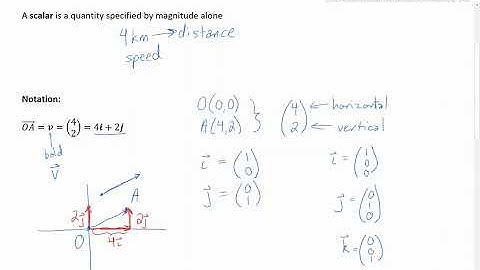 A scalar is a quantity specified by magnitude alone
4 km → distance
speed
Notation:
\overrightarrow{OA} = v = \begin{pmatrix} 4 \\ 2 \end{pmatrix} = 4i + 2j
bold
\vec{V}
O(0,0)
A(4,2)
\begin{pmatrix} 4 \\ 2 \end{pmatrix} ← horizontal
← vertical
\vec{i} = \begin{pmatrix} 1 \\ 0 \end{pmatrix}
\vec{j} = \begin{pmatrix} 0 \\ 1 \end{pmatrix}
\vec{i} = \begin{pmatrix} 1 \\ 0 \\ 0 \end{pmatrix}
\vec{j} = \begin{pmatrix} 0 \\ 1 \\ 0 \end{pmatrix}
\vec{k} = \begin{pmatrix} 0 \\ 0 \\ 1 \end{pmatrix}
A
2\vec{j}
2\vec{j}
O
4\vec{i}